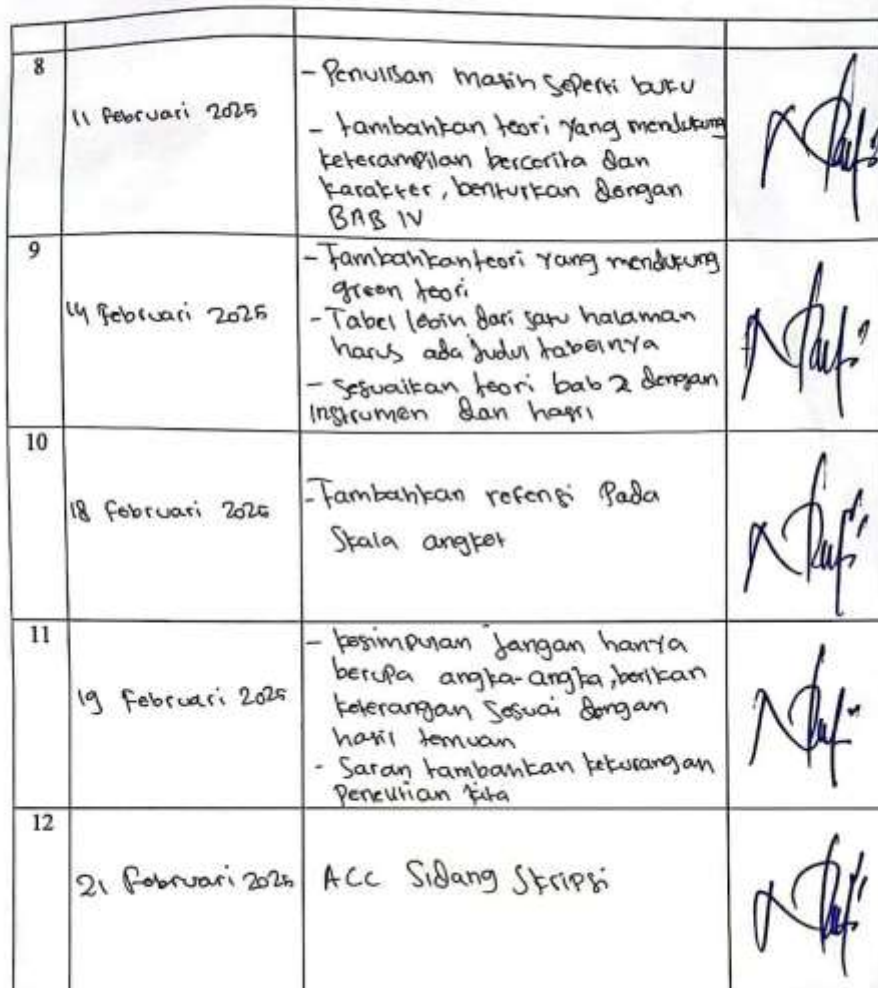 8
11 Februari 2025
- Penulisan masih seperti buku
- tambahkan teori yang mendukung
keterampilan bercerita dan
karakter, benturkan dengan
BAB IV
9
14 Februari 2025
- Tambahkan teori yang mendukung
green teori
- Tabel lebih dari satu halaman
harus ada judul tabelnya
- Sesuaikan teori bab 2 dengan
instrumen dan hasil
10
18 Februari 2025
- Tambahkan refensi Pada
Skala angket
11
19 Februari 2025
- kesimpulan jangan hanya
berupa angka-angka, berikan
keterangan sesuai dengan
hasil temuan
- Saran tambahkan kekurangan
Penelitian kita
12
21 Februari 2025
ACC Sidang Skripsi